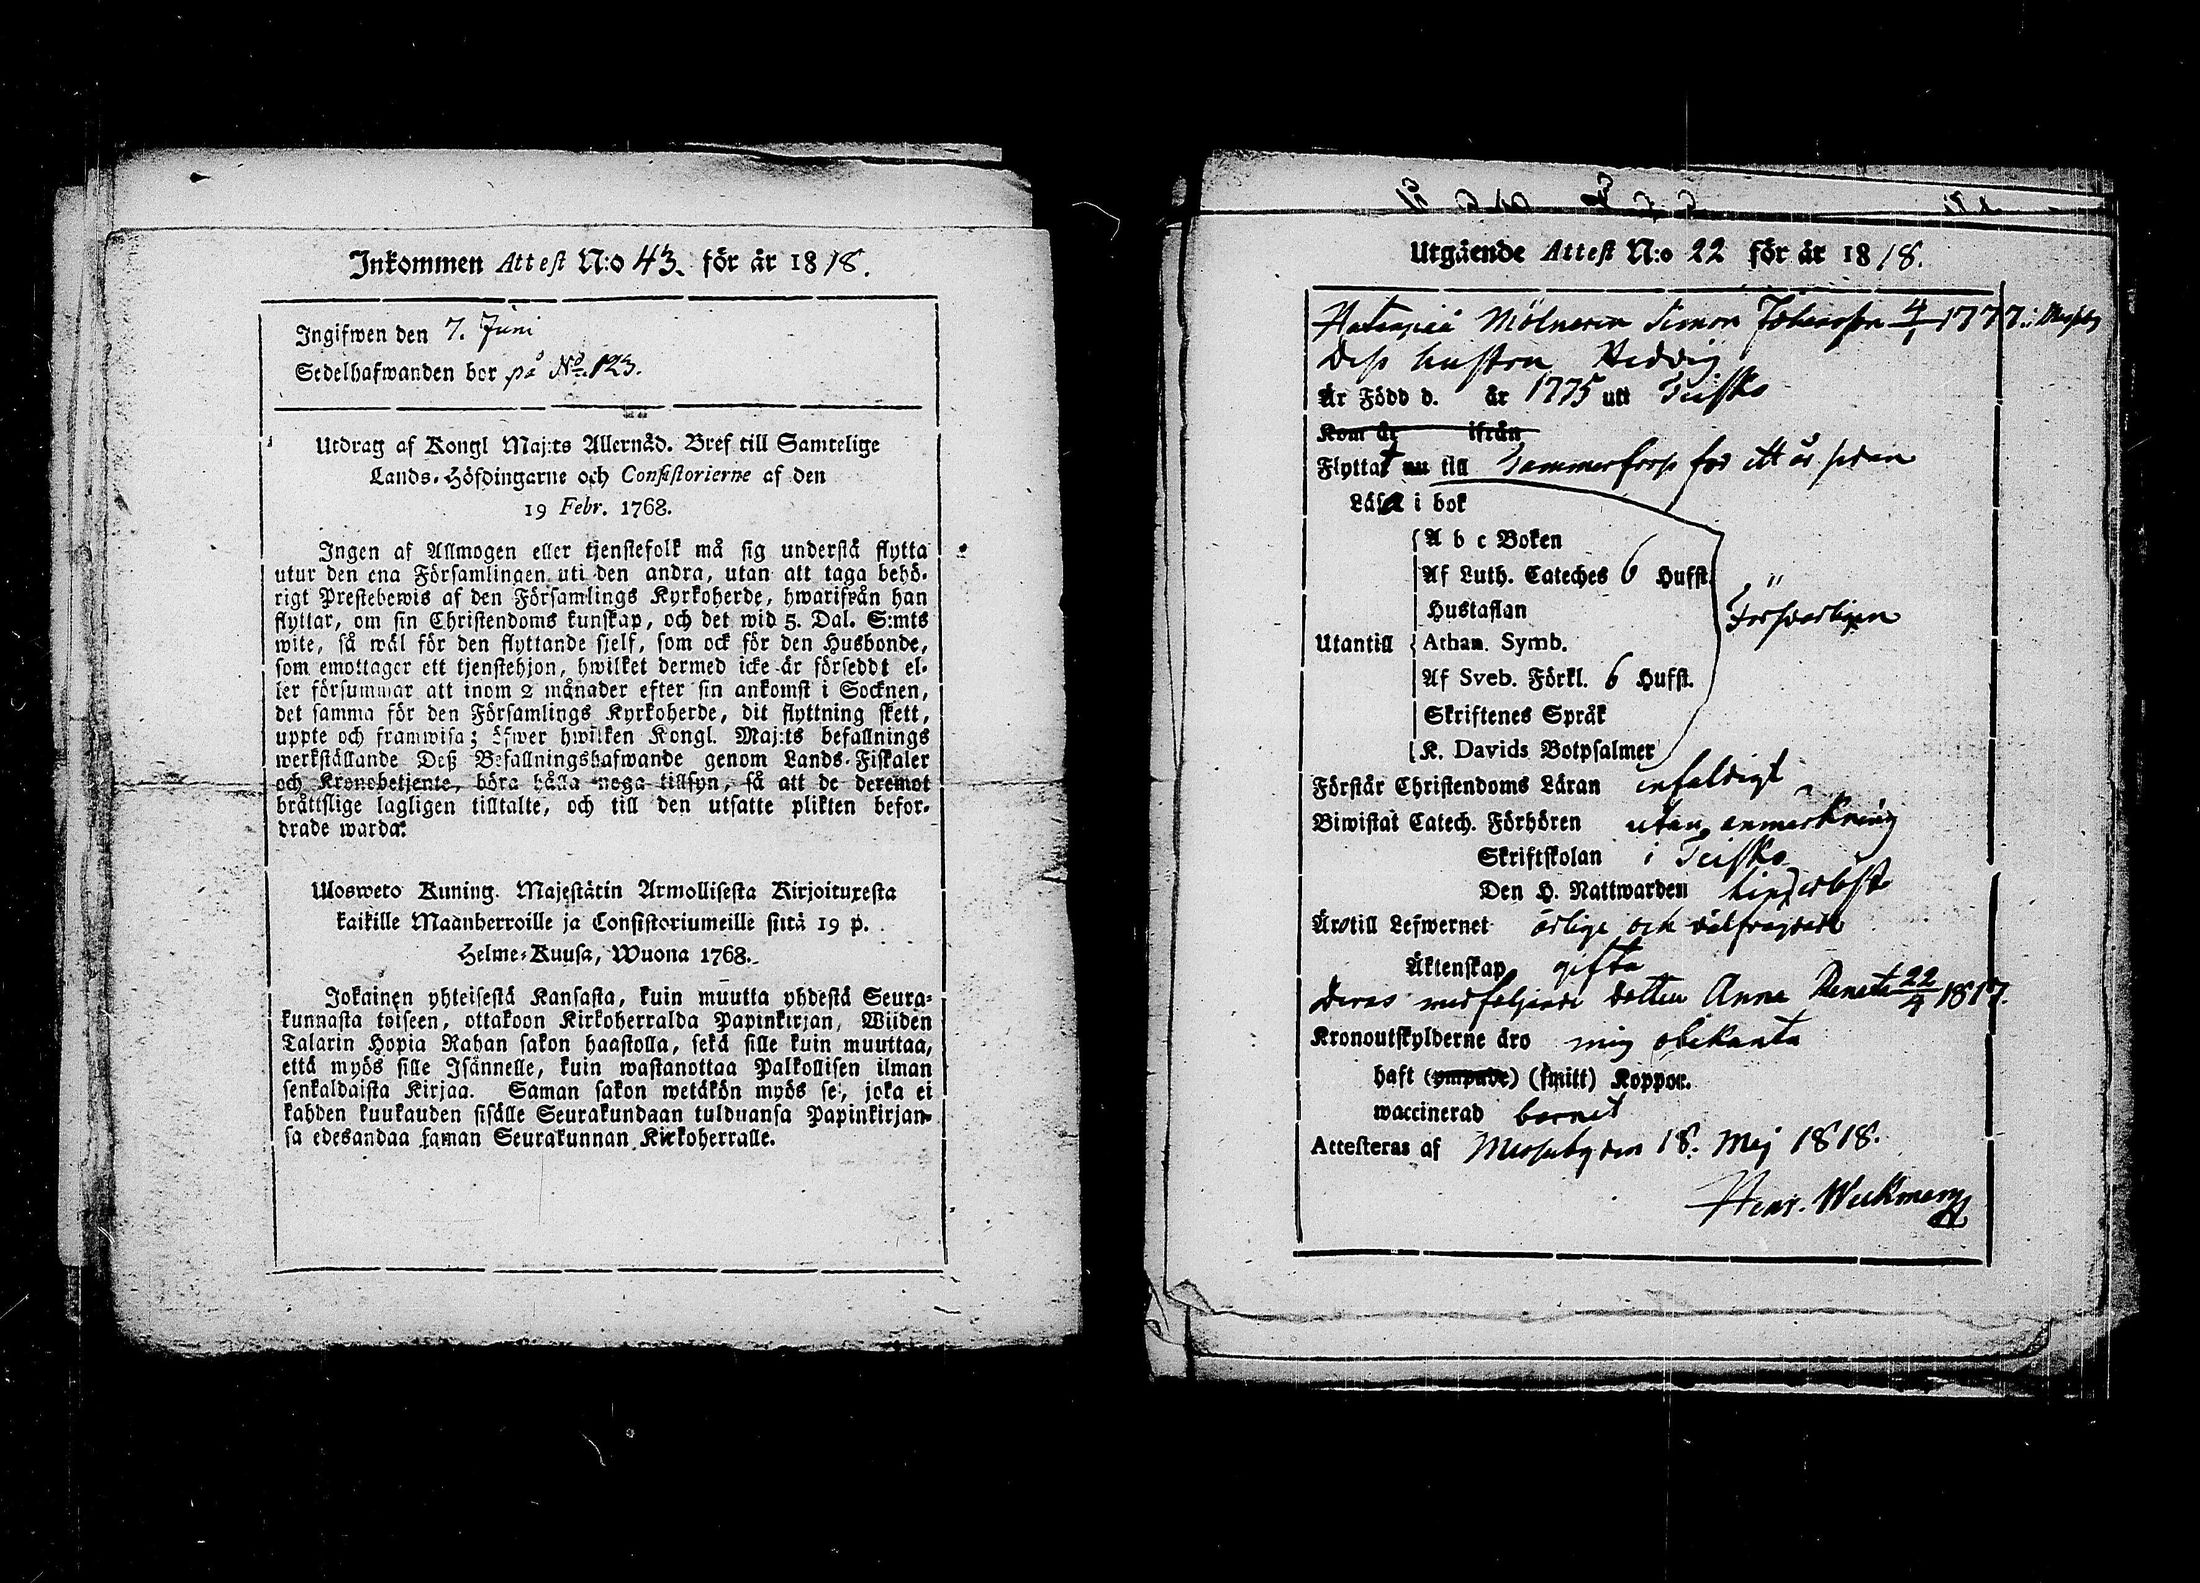 Inkommen Attest N:o 43. för år 1818.
Ingifwen den 7. Juni
Sedelhafwanden bor på No. 123.
Utdrag af Kongl Maj:ts Allernåd. Bref till Samtelige
Lands-Höfdingarne och Consistorierne af den
19 Febr. 1768.
Ingen af Allmogen eller tjenstefolk må sig understå flytta
utur den ena Församlingen uti den andra, utan att taga behö-
rigt Prestebewis af den Församlings Kyrkoherde, hwarifrån han
flyttar, om sin Christendoms kunskap, och det wid 5. Dal. S:mts
wite, så wäl för den flyttande sjelf, som ock för den Husbonde,
som emottager ett tjenstehjon, hwilket dermed icke är förseddt el-
ler försummar att inom 2 månader efter sin ankomst i Socknen,
det samma för den Församlings Kyrkoherde, dit flyttning skett,
uppte och framwisa; öfwer hwilken Kongl. Maj:ts befallnings
werkställande Deß Befallningshafwande genom Lands-Fiskaler
och Kronobetjente, böra hålla noga tillsyn, så att de deremot
bråttslige lagligen tilltalte, och till den utsatte plikten befor-
drade warda.
Ulosweto Kuning. Majestätin Armollisesta Kirjoituxesta
kaikille Maanherroille ja Consistoriumeille siitä 19 p.
Helme-Kuusa, Wuona 1768.
Jokainen yhteisestä Kansasta, kuin muutta yhdestä Seura-
kunnasta toiseen, ottakoon Kirkoherralda Papinkirjan, Wiiden
Talarin Hopia Rahan sakon haastolla, sekä sille kuin muuttaa,
että myös sille Isännelle, kuin wastanottaa Palkollisen ilman
senkaldaista Kirjaa. Saman sakon wetäkön myös se, joka ei
kahden kuukauden sisälle Seurakundaan tulduansa Papinkirjan-
sa edesandaa saman Seurakunnan Kirkoherralle.
Utgående Attest N:o 22 för år 1818.
Mölnaren Simon Johansson 4/1 1777 i
Dess hustru Hedvig
Är Född d. år 1775 uti Teisko
Kom år ifrån
Flyttat nu till Tammerfors för ett år sedan
Läsa i bok
A b c Boken
Af Luth. Cateches 6 Hufst.
Hustaflan
Försvarligen
Utantill Athan. Symb.
Af Sveb. Förkl. 6 Hufst.
Skriftenes Språk
K. Davids Botpsalmer
Förstår Christendoms Läran enfaldigt
Biwistat Catech. Förhören utan anmärkning
Skriftskolan i Teisko
Den H. Nattwarden
Äro till Lefwernet ärlige och välfrejdade
Äktenskap gifta
Deras medföljande dotter Anna Renata 22/4 1817.
Kronoutskylderne äro mig obekanta
haft (ympade) (smitt) Koppor.
waccinerad barnet
Attesteras af Messuby den 18. Maj 1818.
Henr. Weckman